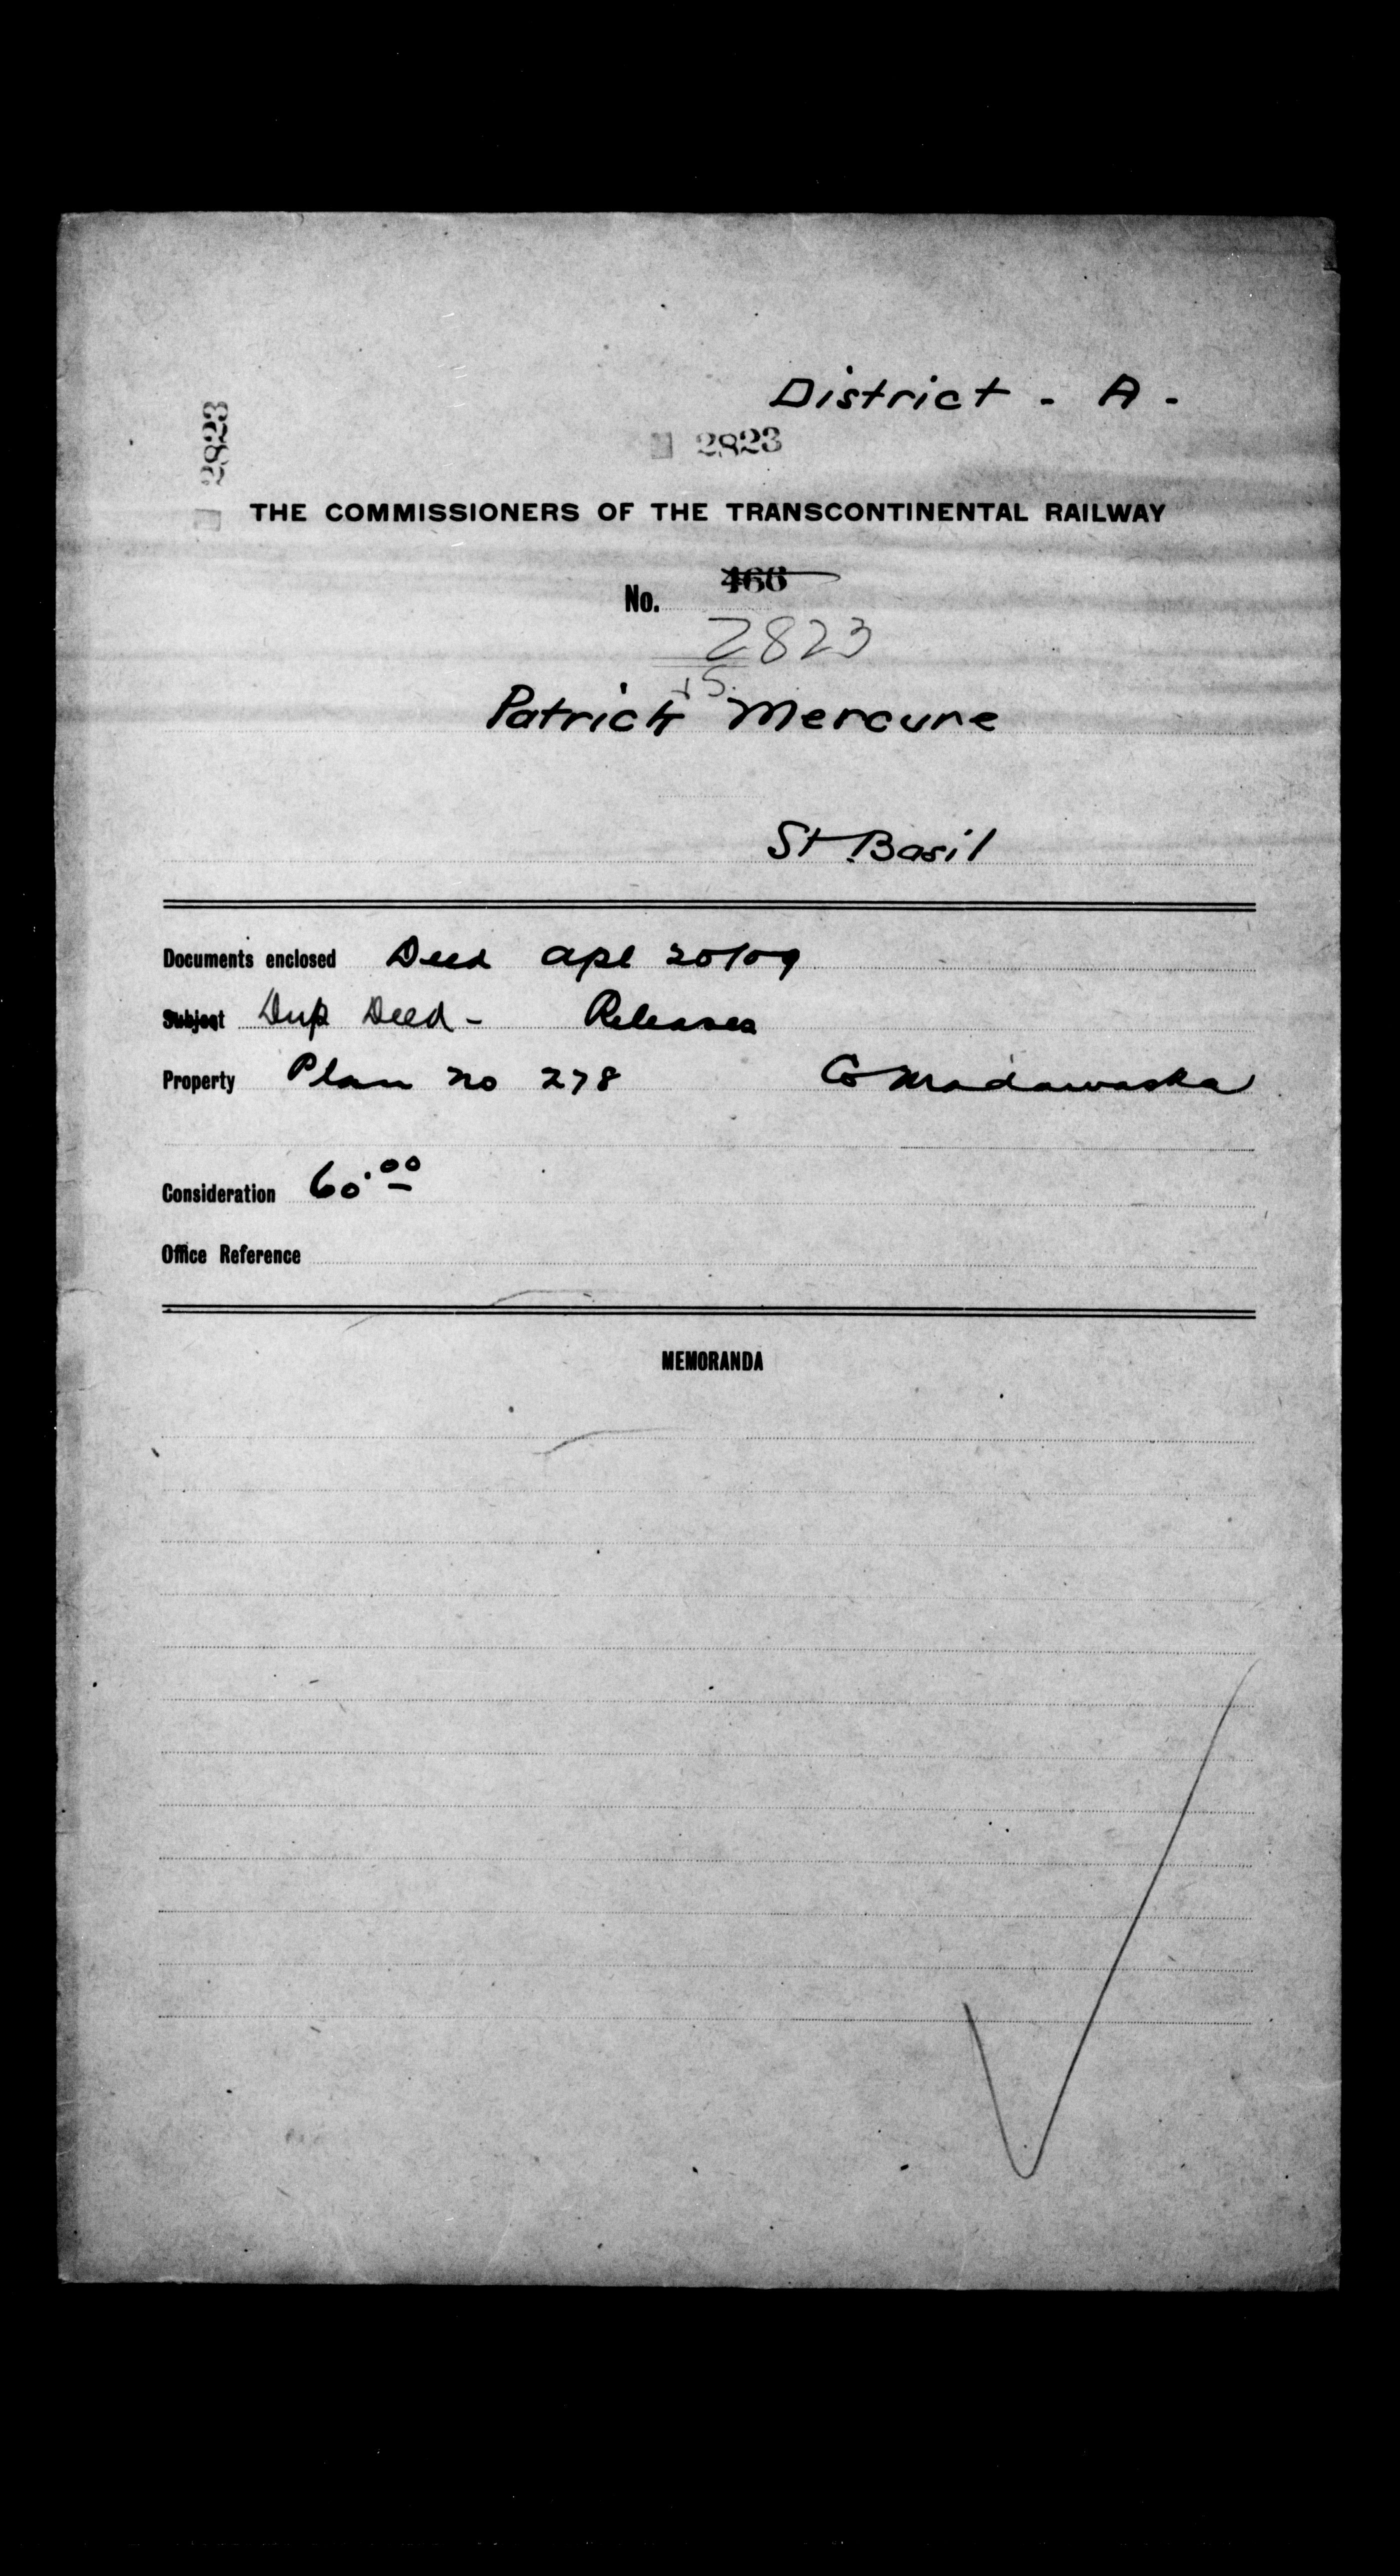 District - A -
2823
2823
THE COMMISSIONERS OF THE TRANSCONTINENTAL RAILWAY
No. 466
2823
Patrick Mercure
St. Basil
Documents enclosed Deed Apl 20/09
Subject Dup Deed - Releases
Property Plan no 278 Co Madawaska
Consideration 60.00
Office Reference
MEMORANDA